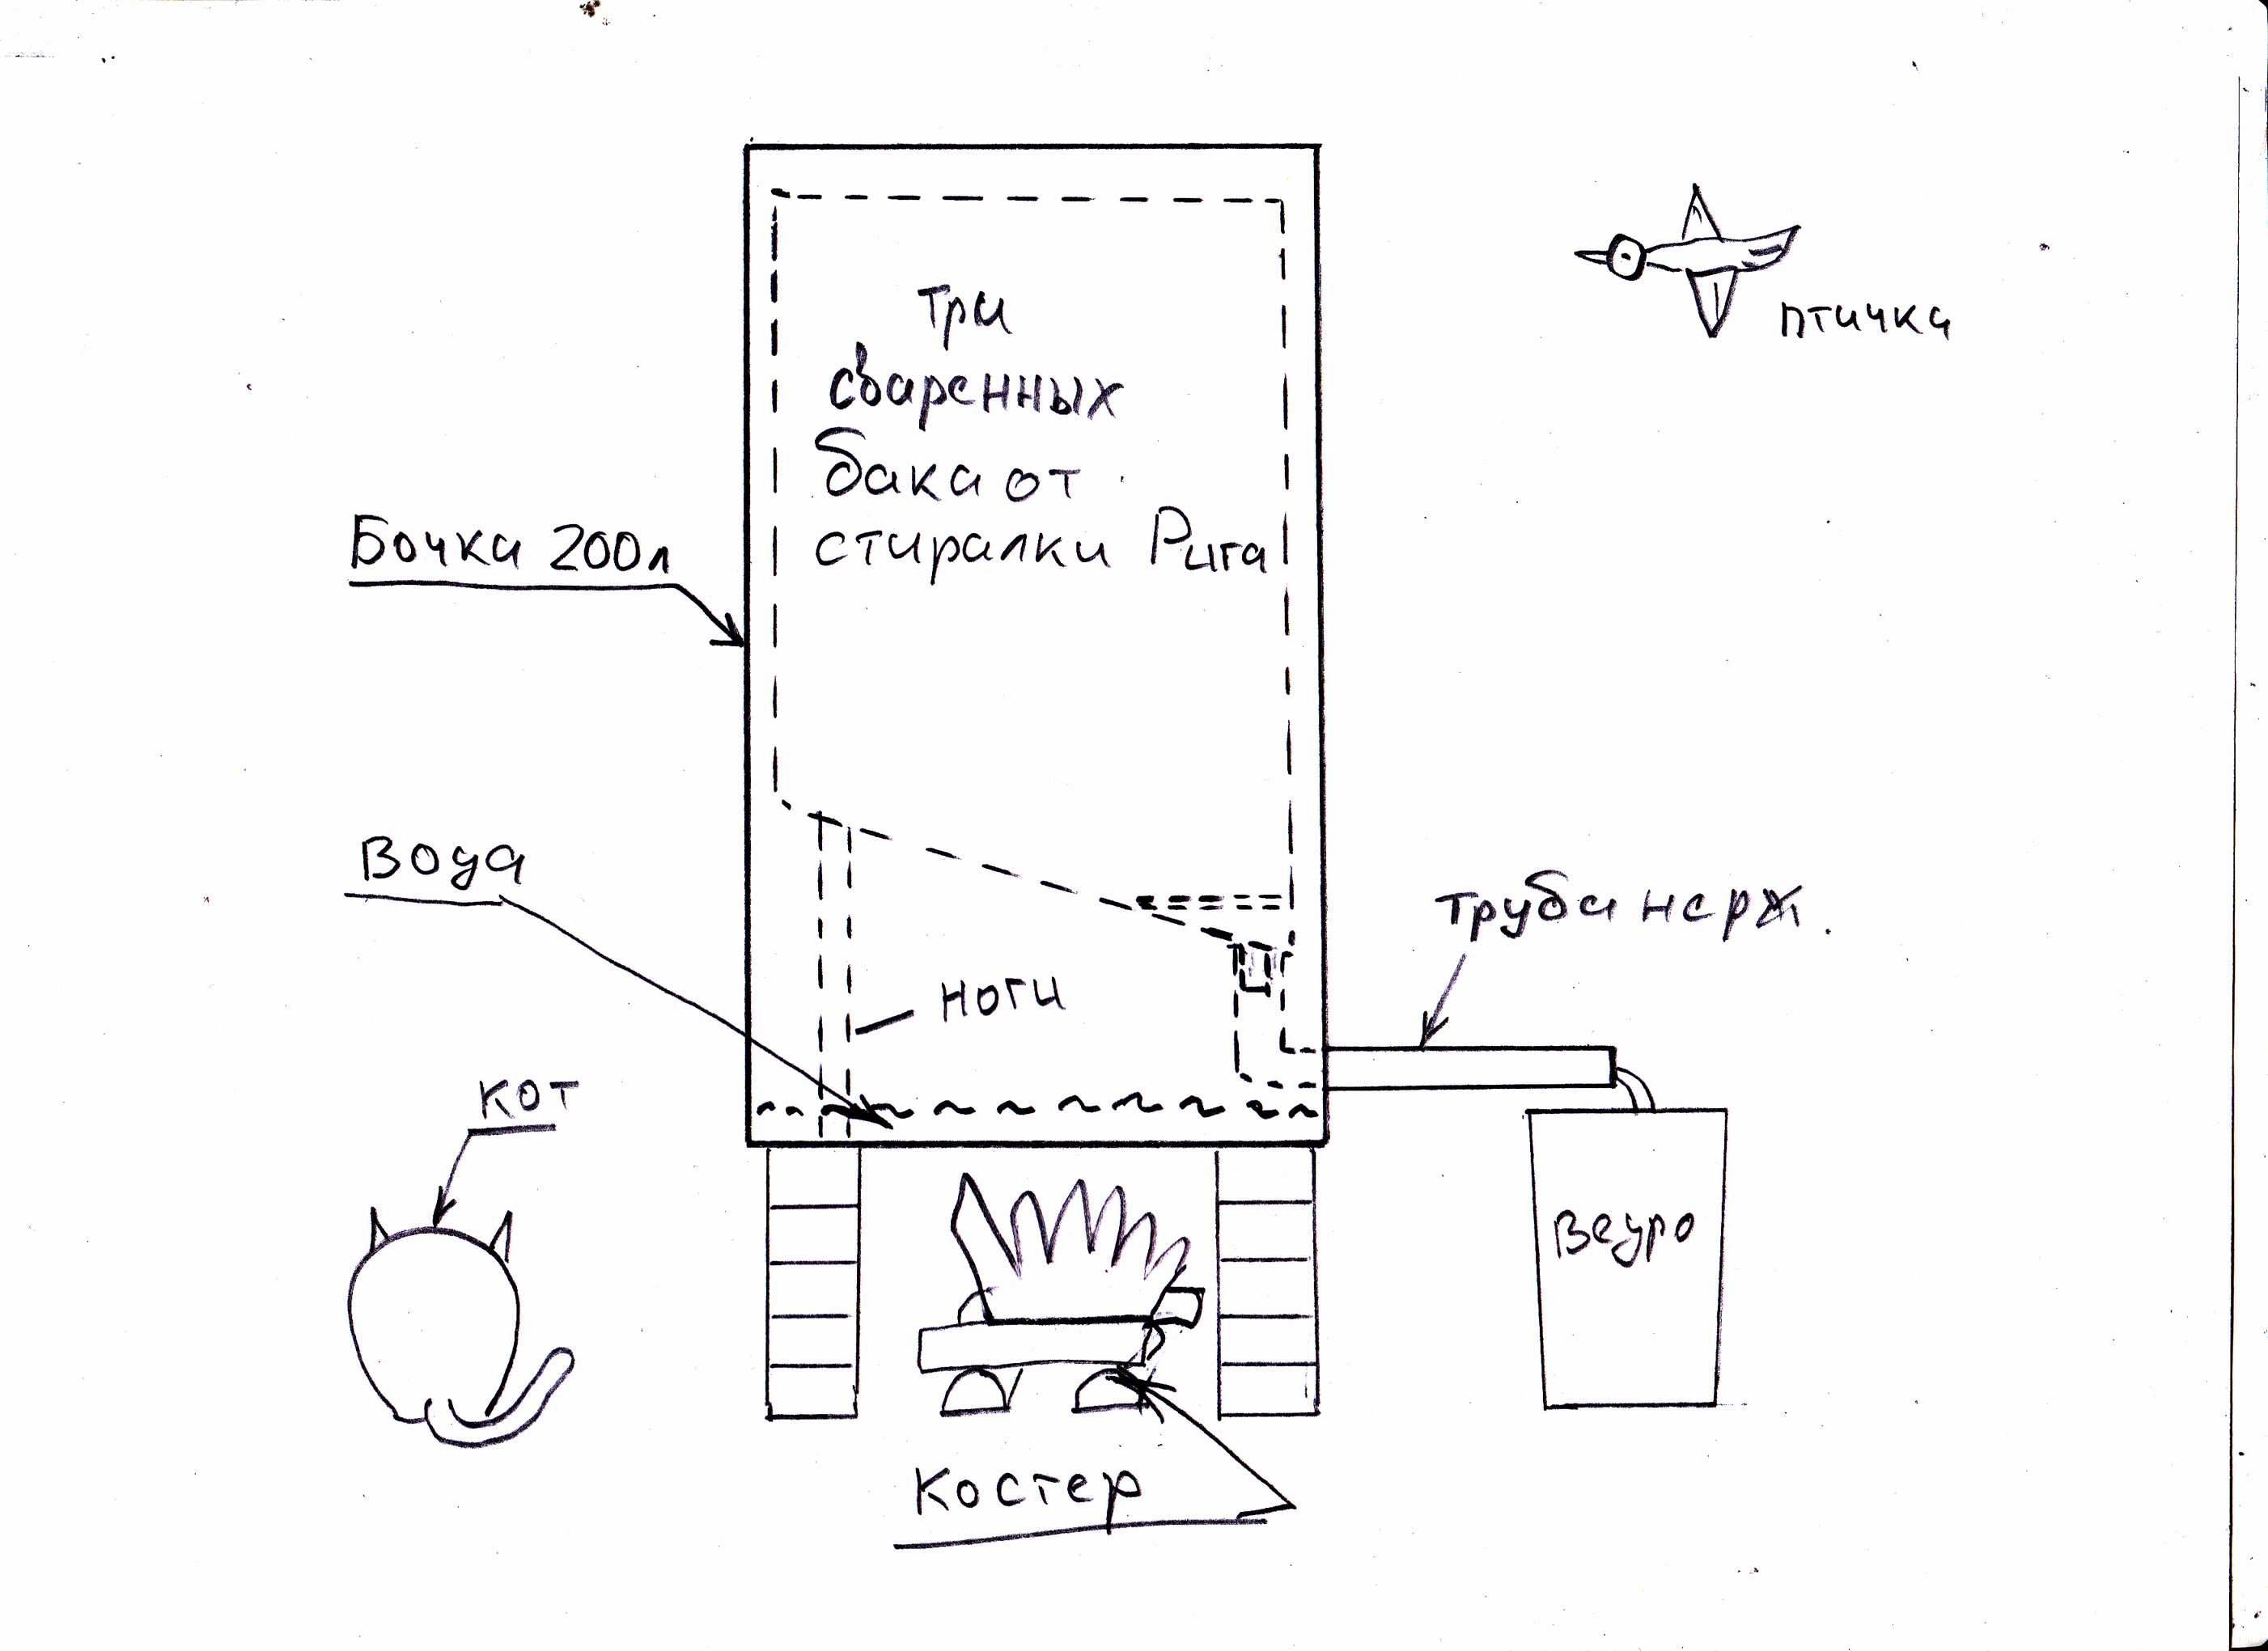 три
сваренных
бака от
стиралки Рига
птичка
Бочка 200л
Вода
труба нерж.
ноги
кот
ведро
Костер